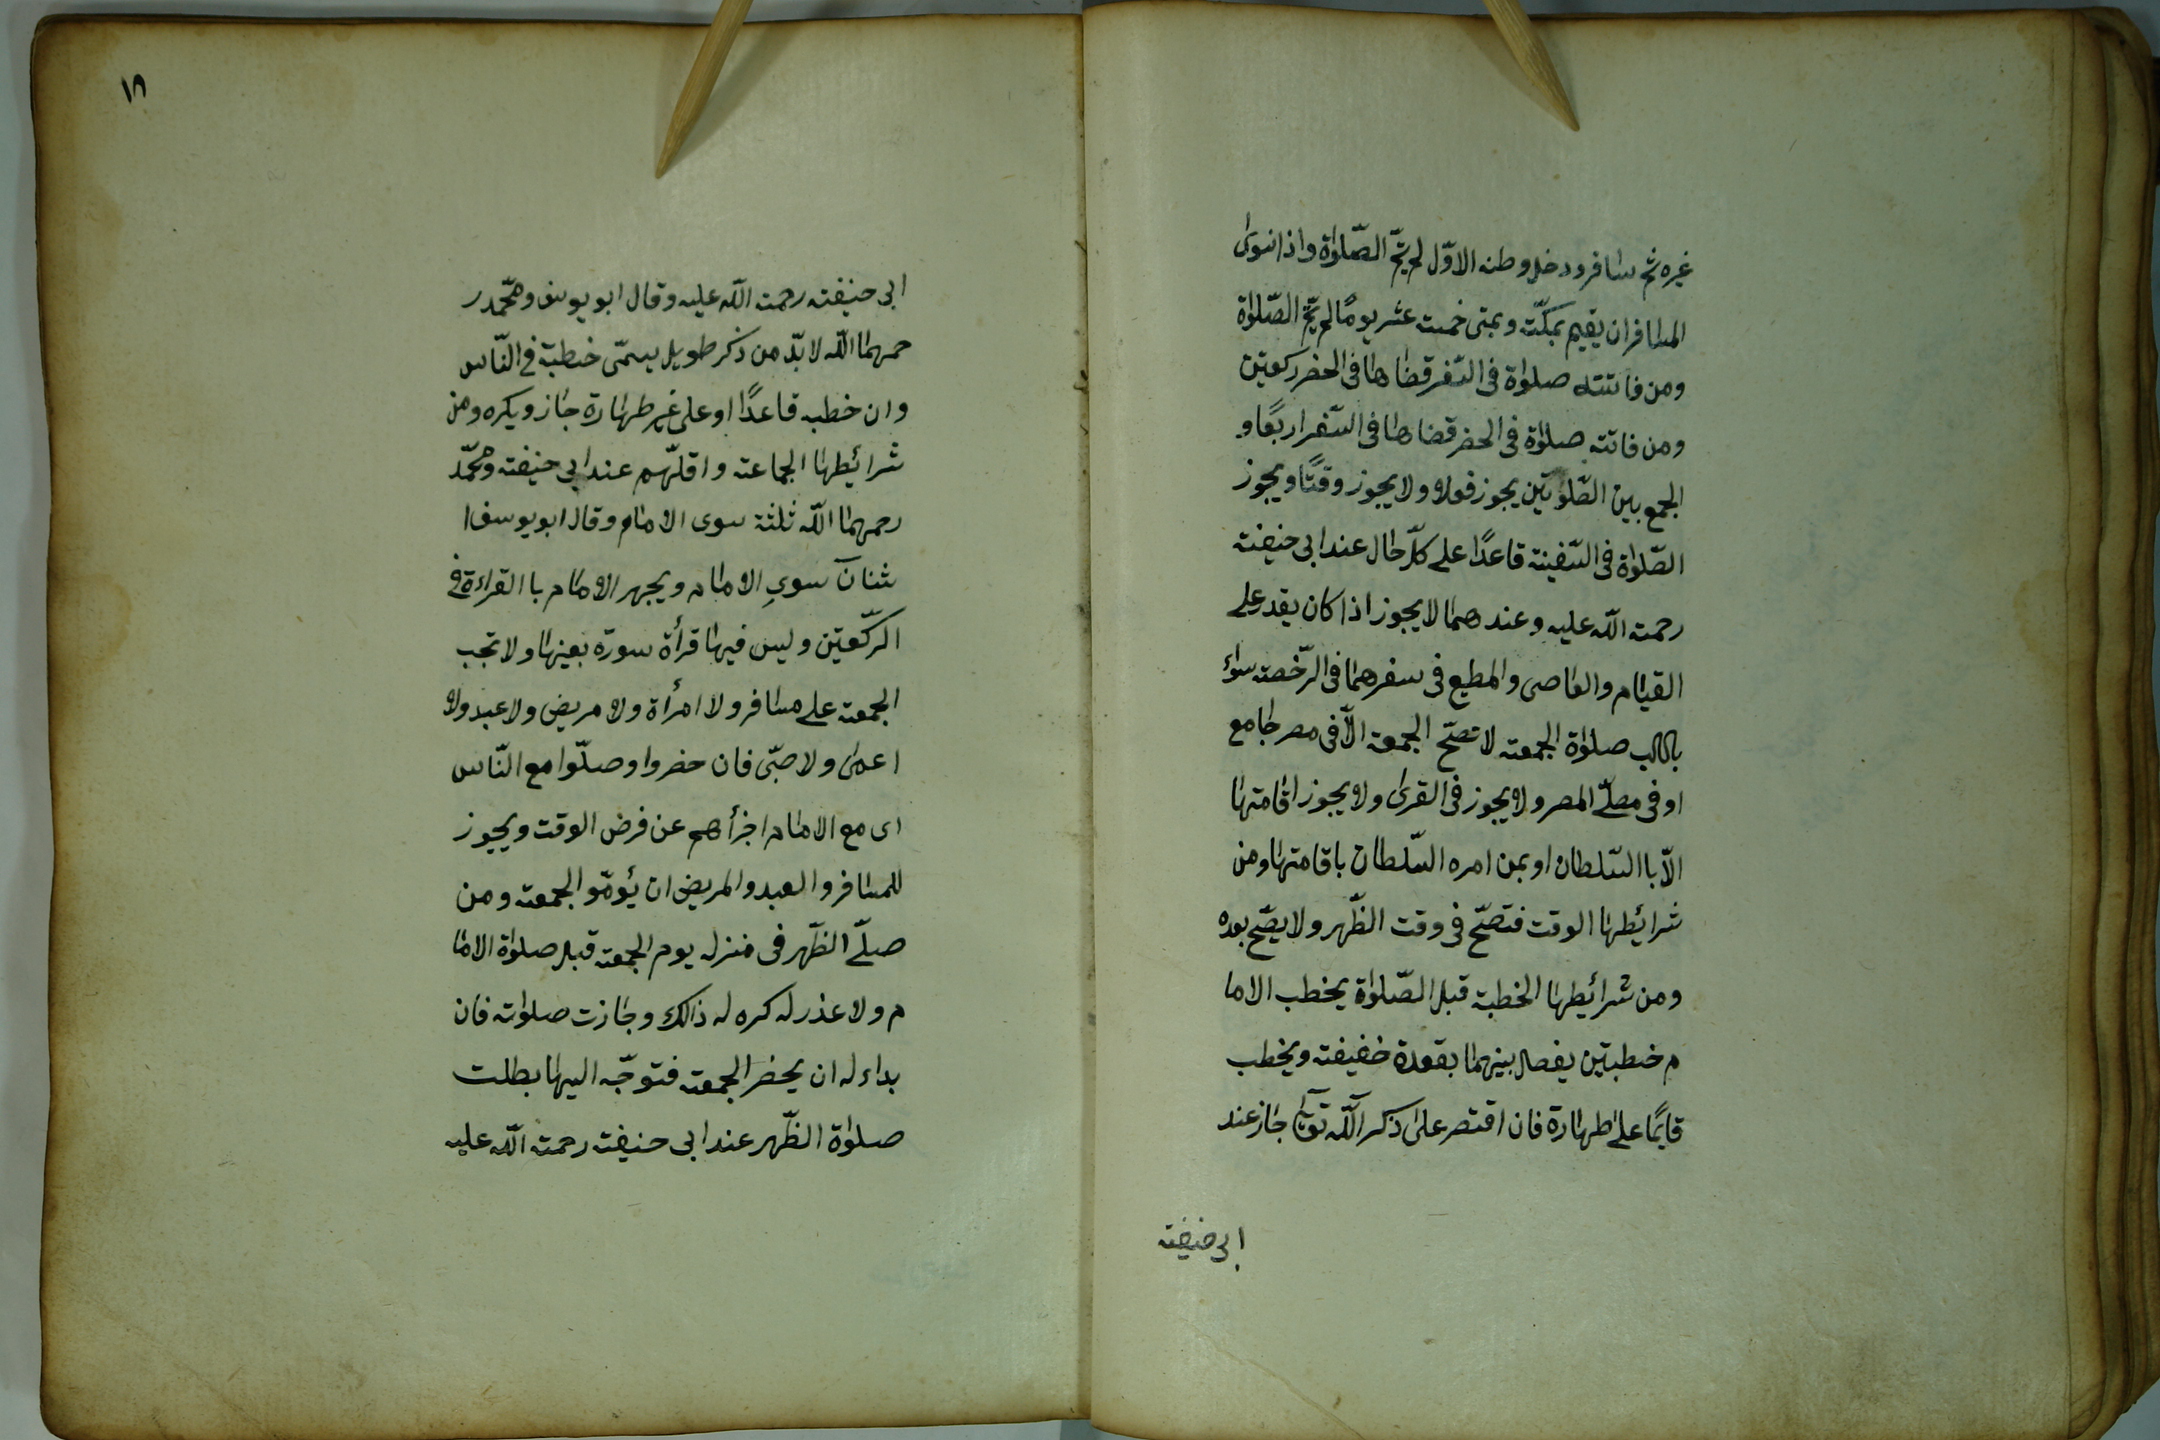 غيره ثم سافر ودخل وطنه الاوّل لم يتمّ الصّلوٰة واذا نوىٰ
المسافر ان يقيم بمكّت وبمنى خمست عشر يومًا لم يتمّ الصّلوٰة
ومن فاتته صلوٰة فى السّفر قضاها فى الحضر ركعتين
ومن فاتته صلوٰة فى الحضر قضاها فى السّفر اربعًا و
الجمع بين الصّلوٰتين يجوز فعلا ولا يجوز وقتًا ويجوز
الصّلوٰة فى السّفينة قاعدًا على كلّ حال عند ابى حنيفته
رحمته اللّه عليه وعندهما لا يجوز اذا كان يقدر على
القيام والعاصى والمطيع فى سفرهما فى الرّخصته سواء
باب صلوٰة الجمعته لا تصحّ الجمعته الّا فى مصر جامع
او فى مصلّے المصر ولا يجوز فى القرىٰ ولا يجوز اقامتها
الّا باالسّلطان او بمن امره السّلطان باقامتها ومن
شرائيطها الوقت فتصحّ فى وقت الظّهر ولا يصحّ بعده
ومن شرائيطها الخطبة قبل الصّلوٰة يخطب الاما
م خطبتين يفصل بينهما بقعدة خفيفته ويخطب
قايمًا علىٰ طهارة فان اقتصر علىٰ ذكر اللّه تعالىٰ جاز عند
ابى حنيفته
١٨
ابى حنيفته رحمته اللّه عليه وقال ابو يوسف ومحّمد ر
حمهما اللّه لا بدّ من ذكر طويل يسمّى خطبة فى النّاس
وان خطبه قاعدًا او على غير طهارة جاز ويكره ومن
شرائيطها الجماعته واقلّهم عند ابى حنيفته ومحمّد
رحمهما اللّه ثلثة سوى الامام وقال ابو يوسف ا
ثنان سوى الامام ويجهر الامام باالقراءة فى
الركّعتين وليس فيها قرأة سورة بعينها ولا تجب
الجمعته على مسافر ولا امرأة ولا مريض ولا عبد ولا
اعمىٰ ولا صبّى فان حضروا وصلّوا مع النّاس
اى مع الامام اجزأهم عن فرض الوقت ويجوز
للمسافر والعبد والمريض ان يؤمّو الجمعته ومن
صلّے الظّهر فى منزله يوم الجمعته قبل صلوٰة الاما
م ولا عذر له كره له ذالك وجازت صلوٰته فان
بداء له ان يحضر الجمعته فتوجّه اليها بطلت
صلوٰة الظّهر عند ابى حنيفته رحمته اللّه عليه